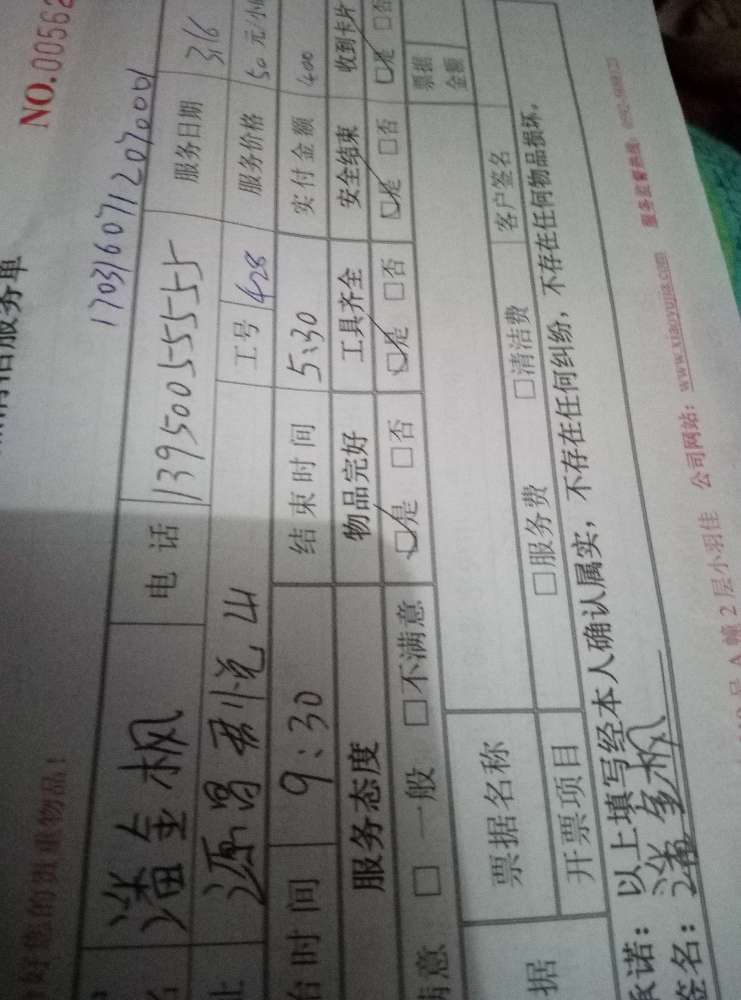 NO.00562
清洁服务单
170316071207000l
好您的贵重物品!
潘金枫 电话 13950055555 服务日期 3.16
源昌君悦山 工号 428 服务价格 50元/小
时间 9:30 结束时间 5:30 实付金额 400
服务态度 物品完好 工具齐全 安全结束 收到卡片
满意 □一般 □不满意 □是 □否 □是 □否 □是 □否 □是 □否
票据名称 票据金额
据 开票项目 □服务费 □清洁费 客户签名
承诺:以上填写经本人确认属实,不存在任何纠纷,不存在任何物品损坏。
签名:潘金枫
A幢2层小羽佳 公司网站:www.xiaoyujia.com 服务监督热线: